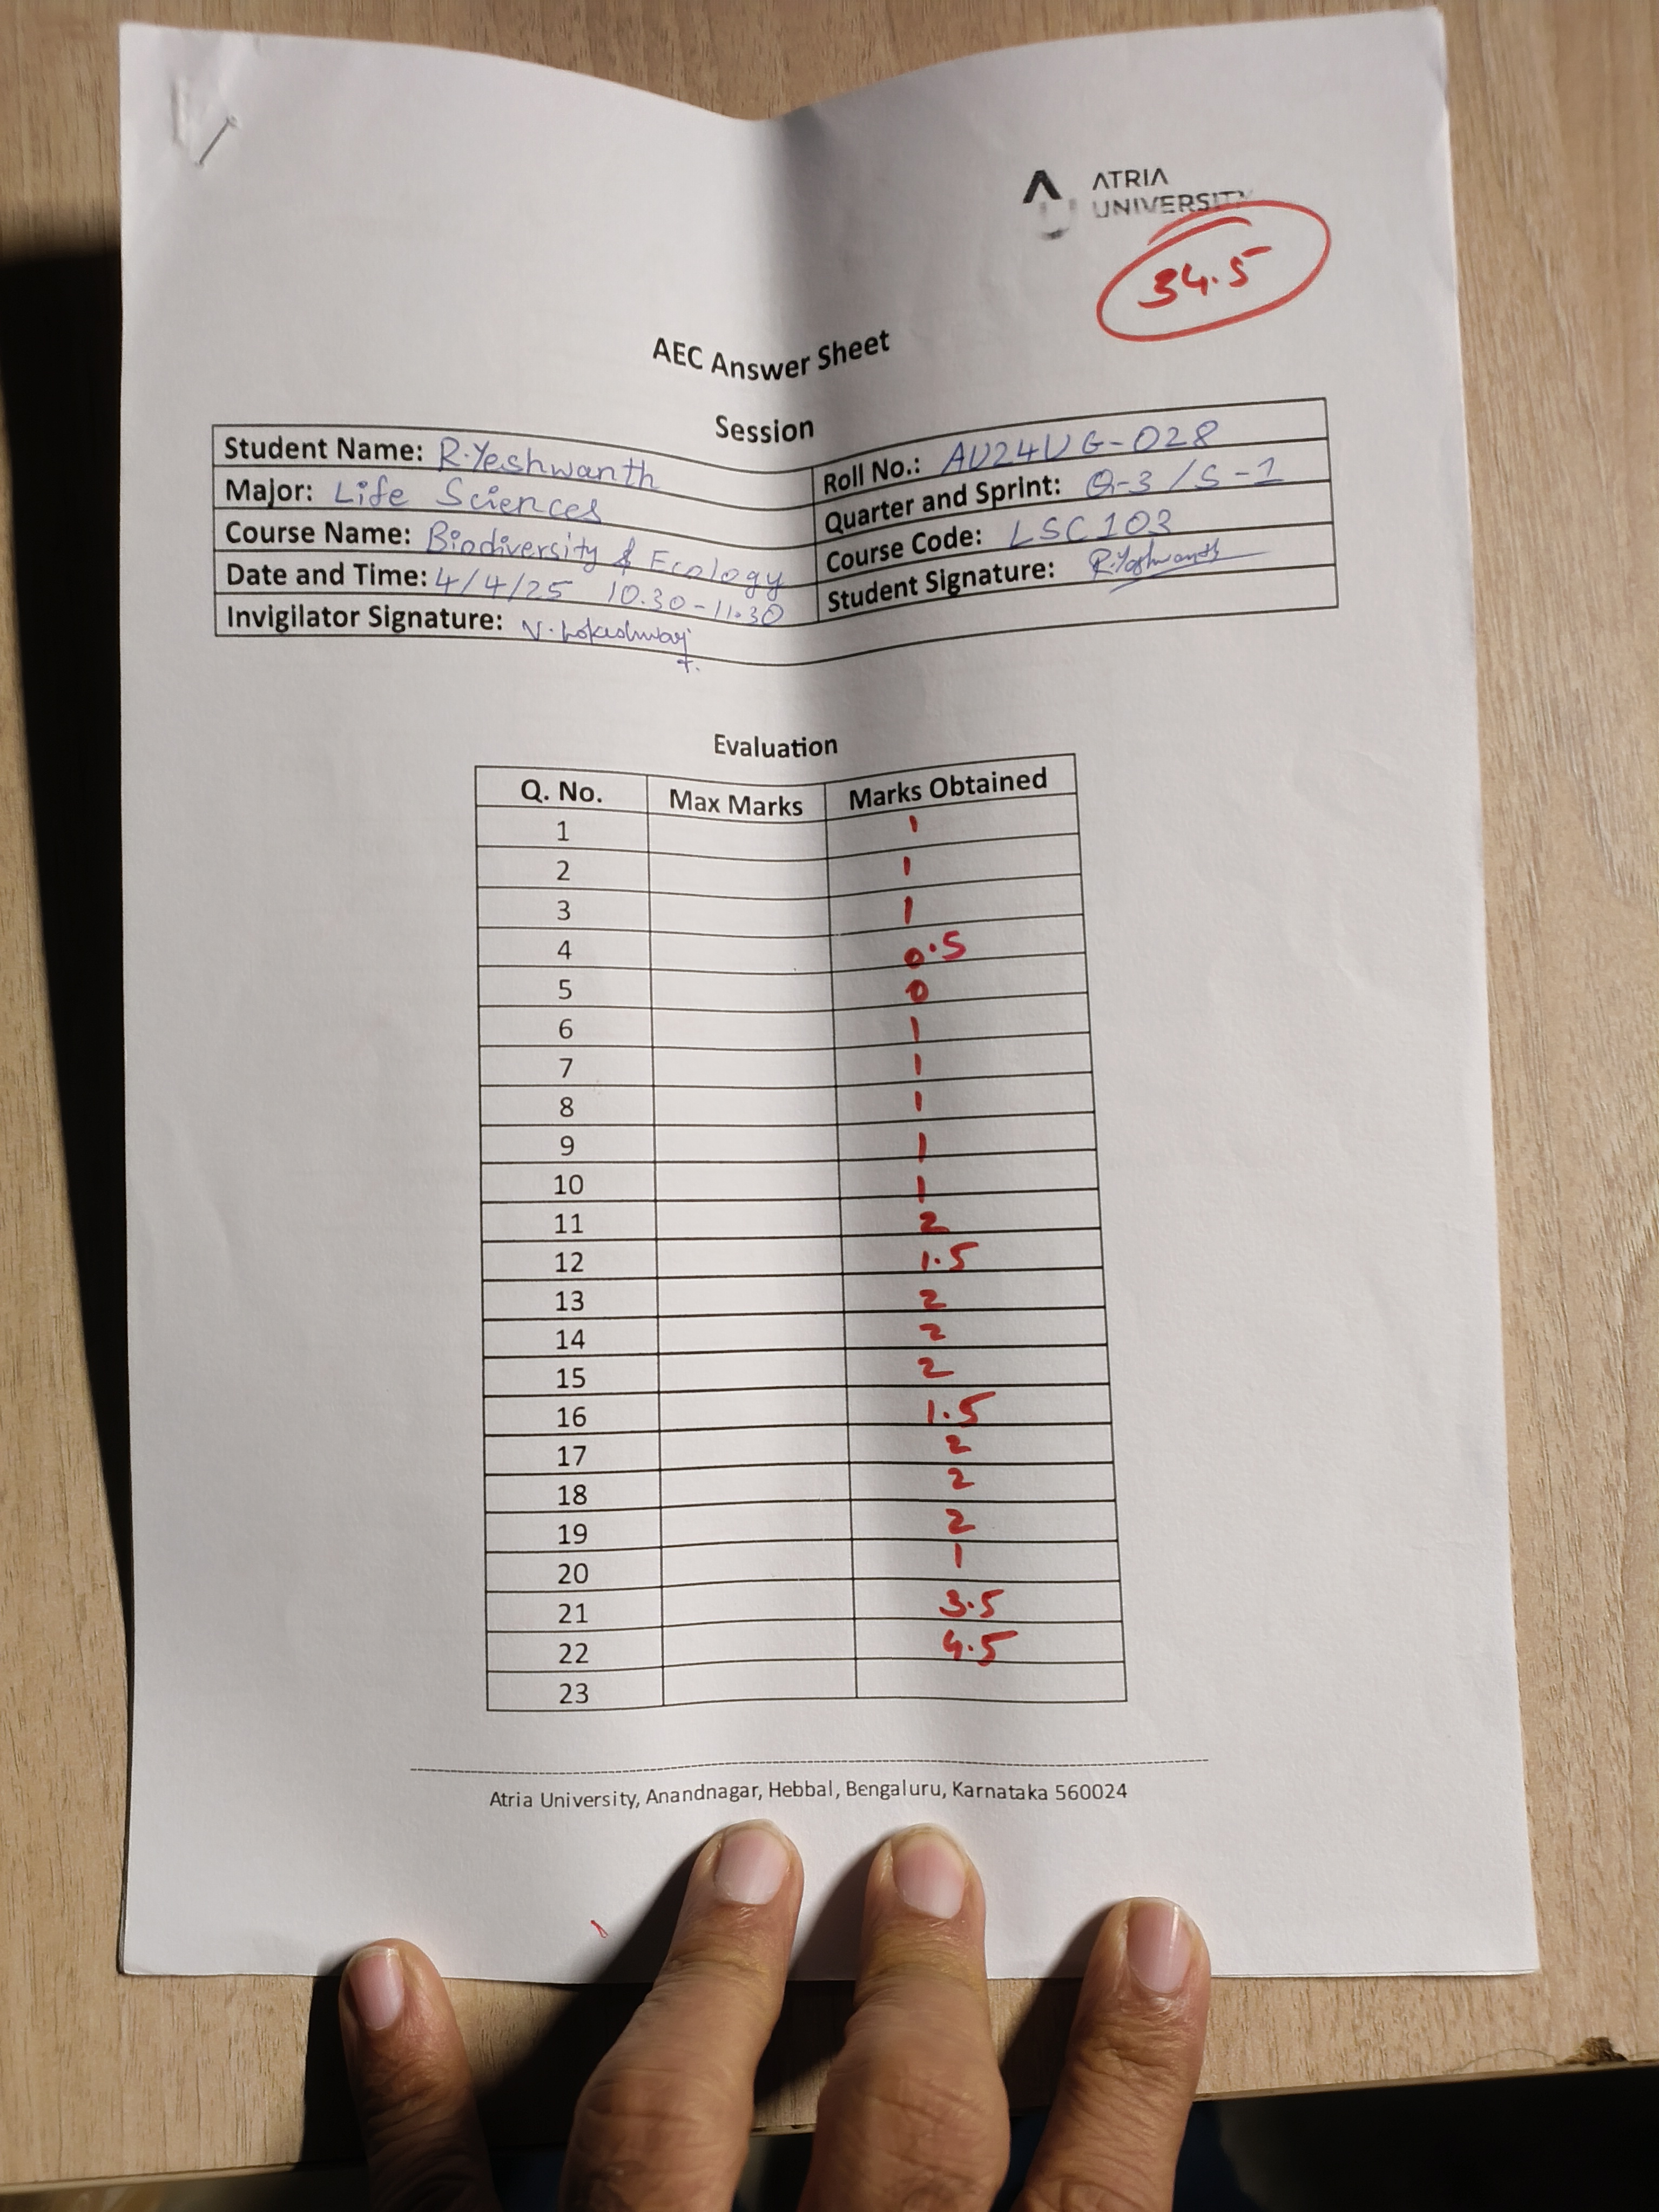 ATRIA
UNIVERSITY
34.5
AEC Answer Sheet
Session
Student Name: R.Yeshwanth
Roll No.: AU24UG-028
Major: Life Sciences
Quarter and Sprint: Q-3/S-1
Course Name: Biodiversity & Ecology
Course Code: LSC103
Date and Time: 4/4/25 10.30-11.30
Student Signature: R.Yeshwanth
Invigilator Signature:
Evaluation
Q. No. Max Marks Marks Obtained
1 1
2 1
3 1
4 0.5
5 0
6 1
7 1
8 1
9 1
10 1
11 2
12 1.5
13 2
14 2
15 2
16 1.5
17 2
18 2
19 2
20 1
21 3.5
22 4.5
23
Atria University, Anandnagar, Hebbal, Bengaluru, Karnataka 560024